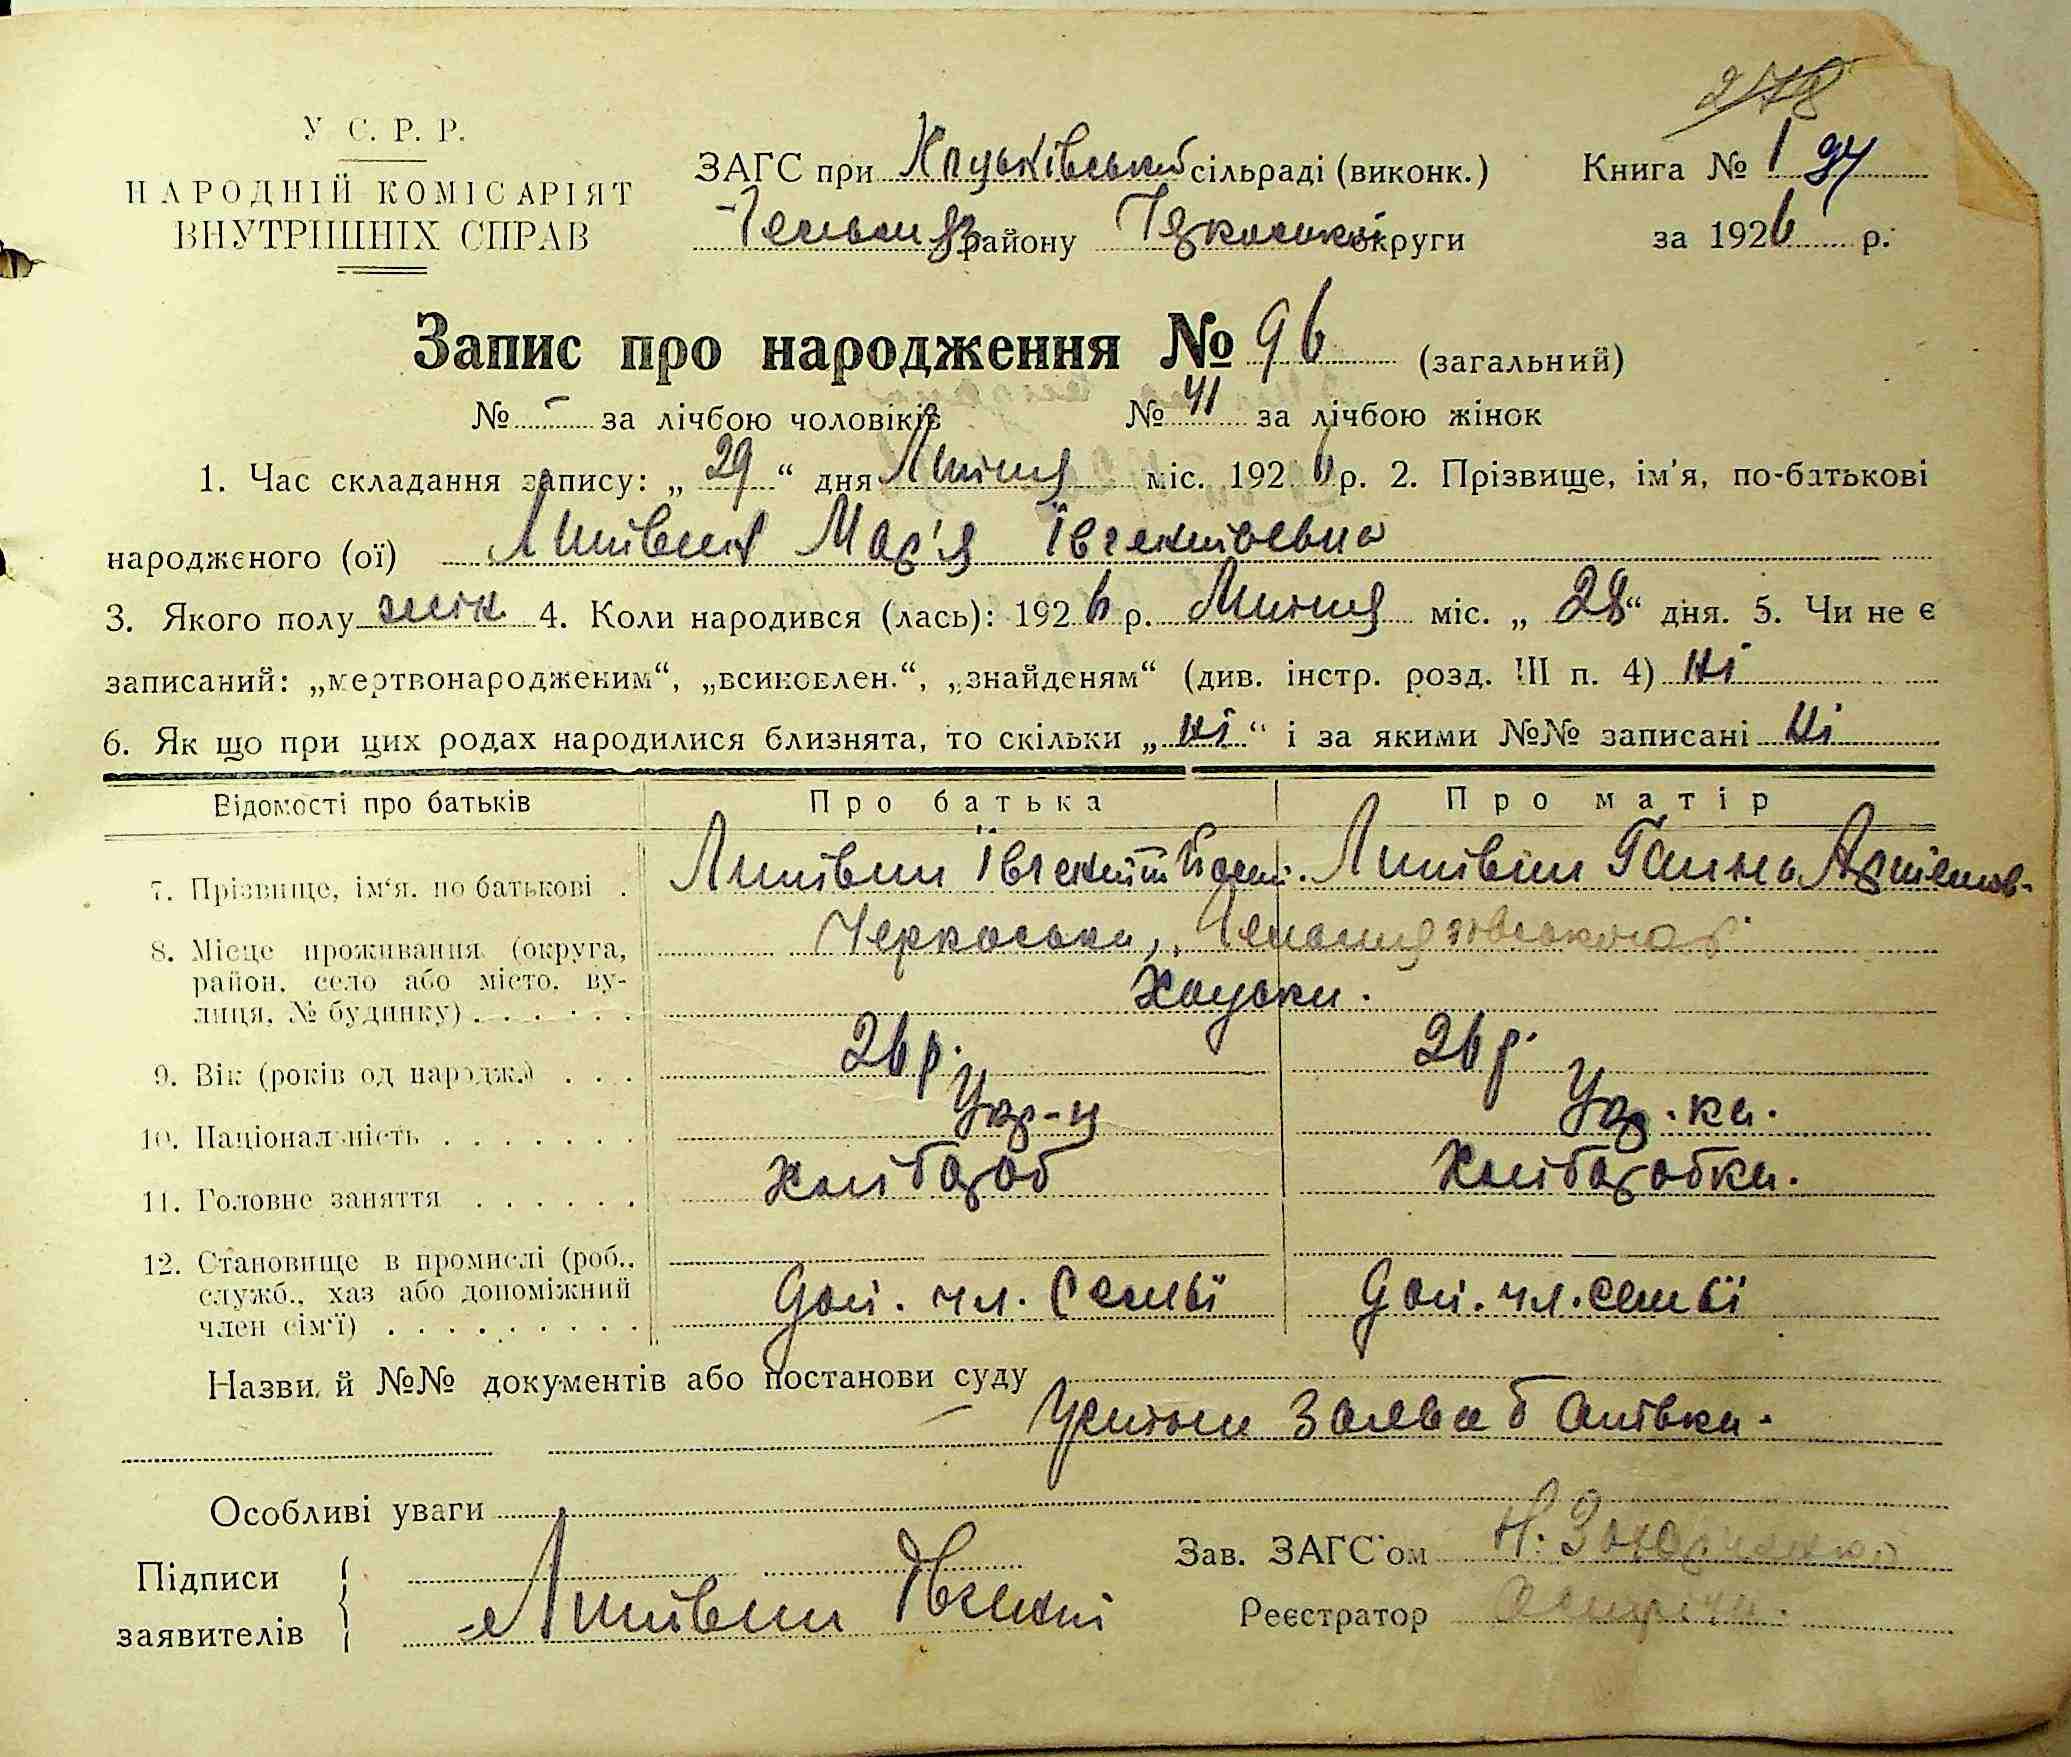 278
У С. Р. Р.
НАРОДНІЙ КОМІСАРІЯТ
ВНУТРІШНІХ СПРАВ
ЗАГС при Хацьківській сільраді (виконк.) Книга № 1 94
району Черкаської округи за 1926 р.
Запис про народження № 96 (загальний)
№ - за лічбою чоловіків № 41 за лічбою жінок
1. Час складання запису: „ 29 “ дня Липня міс. 1926 р. 2. Прізвище, ім'я, по-батькові
народженого (ої) Литвин Мар'я Івгенитовна
3. Якого полу жін 4. Коли народився (лась): 1926 р. Липня міс. „ 28 “ дня. 5. Чи не є
записаний: „мертвонародженим“, „всиновлен.“, „знайденям“ (див. інстр. розд. III п. 4) ні
6. Як що при цих родах народилися близнята, то скільки „ ні “ і за якими №№ записані ні
Відомості про батьків Про батька Про матір
7. Прізвище, ім'я. по батькові . Литвин Литвин Ганна Артемов-
8. Місце проживання (округа, район, село або місто, вулиця, № будинку) . . . . . . Черкаська,
Хацьки.
9. Вік (років од народж.) . . . 26 р. 26 р.
10. Національність . . . . . . . Укр-ц Укр.-ка.
11. Головне заняття . . . . . . хлібороб хліборобка.
12. Становище в промислі (роб., служб., хаз або допоміжний член сім'ї) . . . . . . . . . Доп. чл. семьї Доп. чл. семьї
Назви й №№ документів або постанови суду
Устна заява батька.
Особливі уваги
Підписи
заявителів Литвин
Зав. ЗАГС'ом
Реєстратор